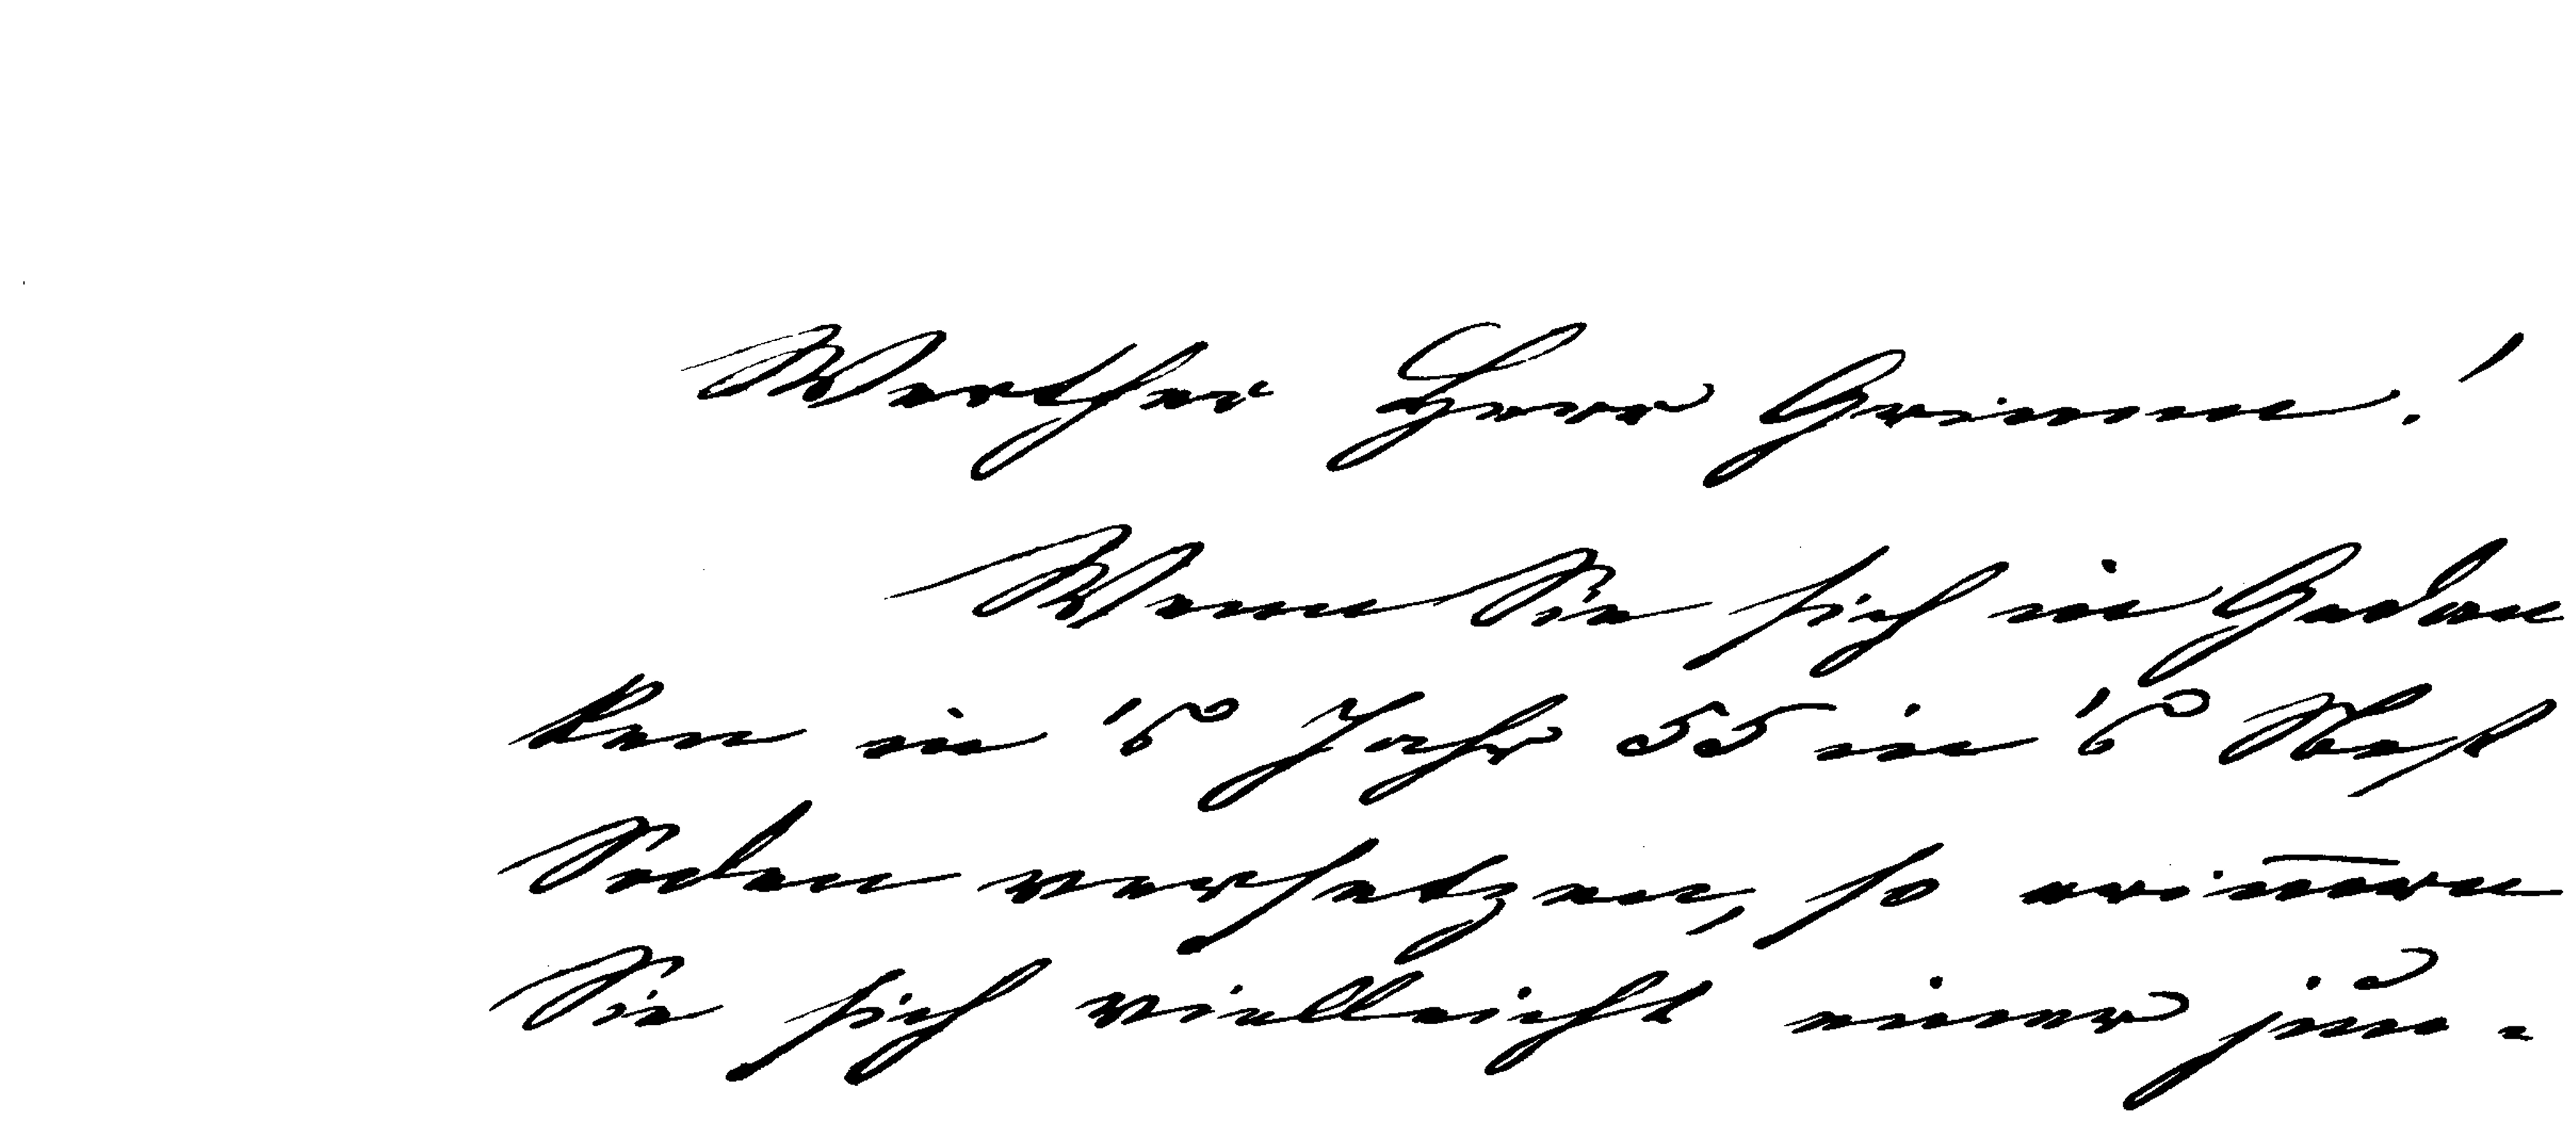 Werther Herr Grimm!
Wenn Sie sich in Gedan
ken in 's Jahr 55 in 's Nest
Soden versetzen, so erin̄ern
Sie sich vielleicht einer jun-